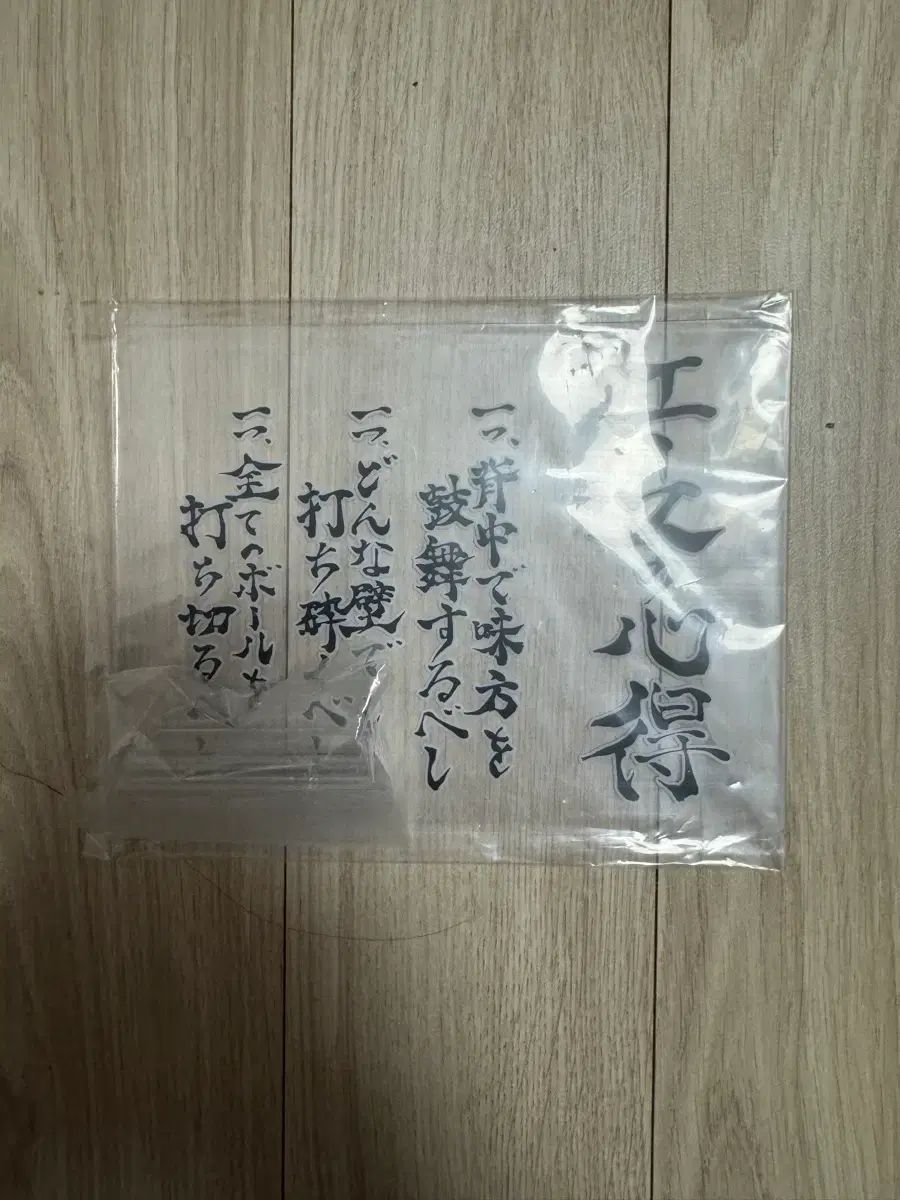 エースの心得
一つ、背中で味方を
鼓舞するべし
一つ、どんな壁で
打ち砕くべし
一つ、全てのボールを
打ち切る